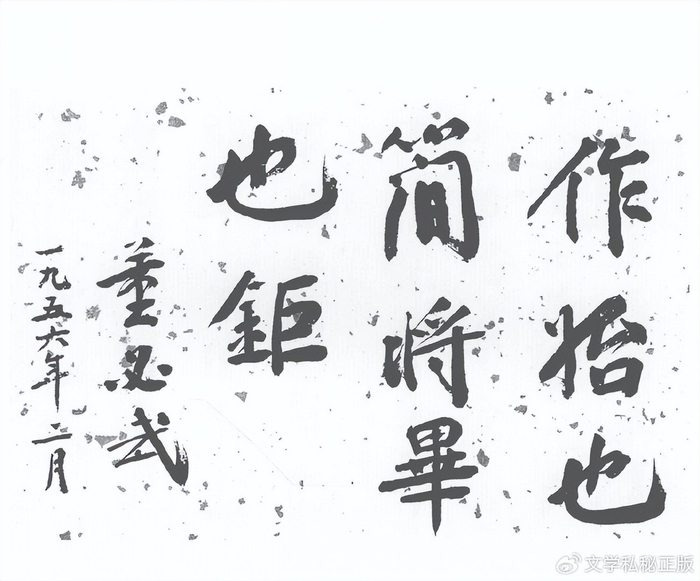 作始也
簡将畢
也鉅
董必武
一九五六年二月
@文学私秘正版